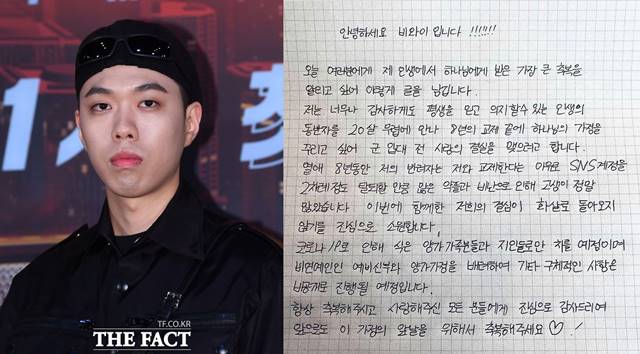 TF.CO.KR
THE FACT
안녕하세요 비와이 입니다 !!!!!!
오늘 여러분에게 제 인생에서 하나님에게 받은 가장 큰 축복을
알리고 싶어 이렇게 글을 남깁니다.
저는 너무나 감사하게도 평생을 믿고 의지할수 있는 인생의
동반자를 20살 무렵에 만나 8년의 교제 끝에 하나님의 가정을
꾸리고 싶어 군 입대 전 사랑의 결실을 맺으려고 합니다.
연애 8년동안 저의 반려자는 저와 교제한다는 이유로 SNS계정을
2차례정도 탈퇴할 만큼 많은 악플과 비난으로 인해 고생이 정말
많았습니다 이번에 함께한 저희의 결심이 화살로 돌아오지
않기를 진심으로 소원합니다.
코로나19로 인해 식은 양가가족분들과 지인들로만 치를 예정이며
비연예인인 예비신부와 양가가정을 배려하여 기타 구체적인 사항은
비공개로 진행될 예정입니다.
항상 축복해주시고 사랑해주신 모든 분들에게 진심으로 감사드리며
앞으로도 이 가정의 앞날을 위해서 축복해주세요 ♡.!